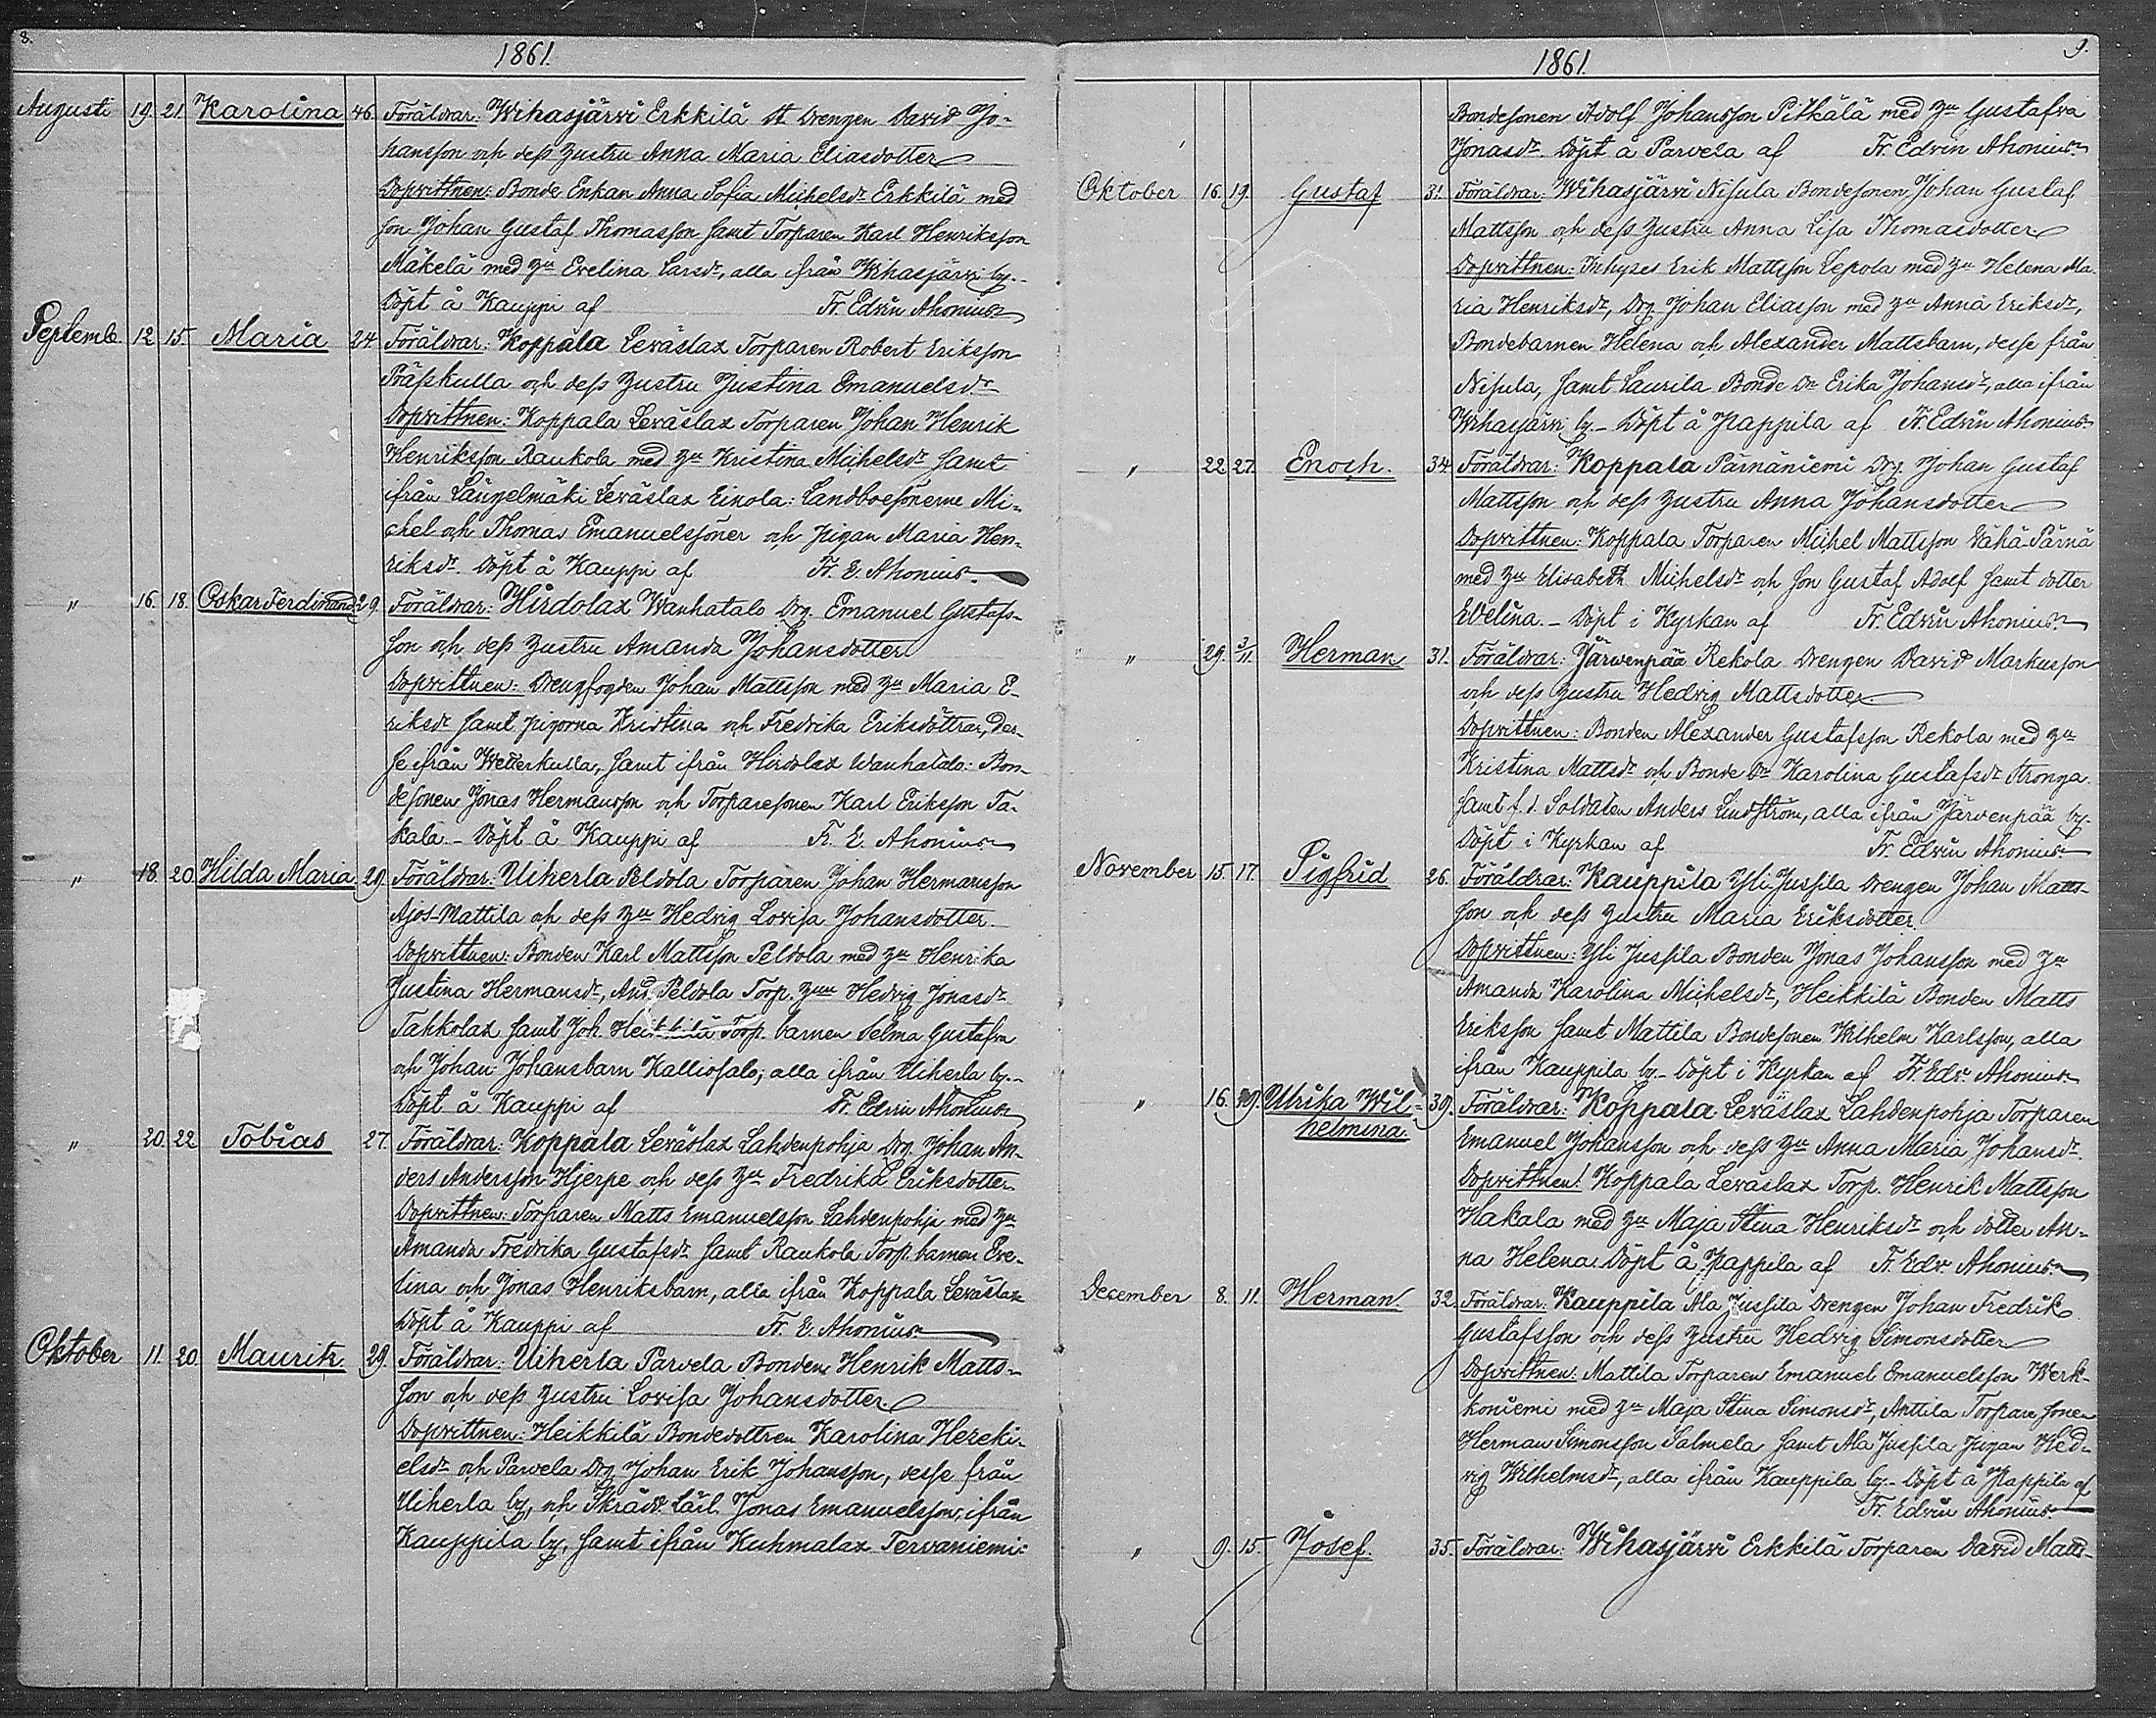 8.
1861.
Augusti 19. 21. Karolina 46. Föräldrar: Wihasjärvi Erkkilä Drengen David Jo-
hansson och dess hustru Anna Maria Eliasdotter
Dopvittnen: Bonde Enkan Anna Sofia Michelsdr Erkkilä med
son Johan Gustaf Thomasson samt Torparen Karl Henriksson
Mäkelä med hu Evelina Larsdr, alla ifrån Wihasjärvi by.-
Döpt å Kauppi af Fr. Edvin Ahonius
Septemb. 12 15. Maria 24 Föräldrar: Koppala Leväslax Torparen Robert Eriksson
Prässkulla och dess hustru Justina Emanuelsdr
Dopvittnen: Koppala Leväslax Torparen Johan Henrik
Henriksson Raukola med hu Kristina Michelsdr samt
ifrån Längelmäki Leväslax Einola: Landboesönerne Mi-
chel och Thomas Emanuelssöner och pigan Maria Hen-
riksdr. Döpt å Kauppi af Fr. E. Ahonius.
" 16. 18. Oskar Ferdinand 29. Föräldrar: Hirdolax Wanhatalo Drg. Emanuel Gustafs-
son och dess hustru Amanda Johansdotter
Dopvittnen: Drengfogden Johan Mattsson med hu Maria E-
riksdr samt pigorna Kristina och Fredrika Eriksdöttrar, des-
se ifrån Wetterkulla, samt ifrån Hirdolax Wanhatalo: Bon-
desonen Jonas Hermansson och Torparesonen Karl Eriksson Ta-
kala.- Döpt å Kauppi af Fr. E. Ahonius
" 18. 20. Hilda Maria 29. Föräldrar: Uiherla Peldola Torparen Johan Hermansson
Ajos-Mattila och dess hu Hedvig Lovisa Johansdotter.
Dopvittnen: Bonden Karl Mattsson Peldola med hu Henrika
Justina Hermansdr, And. Peldola Torp. hun Hedvig Jonasdr
Tahkolax samt Joh. Heikkilä Torp. barnen Selma Gustafva
och Johan Johansbarn Kalliosalo; alla ifrån Uiherla by.-
Döpt å Kauppi af Fr. Edvin Ahonius
" 20. 22 Tobias 27. Föräldrar: Koppala Leväslax Lahdenpohja Drg. Johan An-
ders Andersson Hjerpe och dess hu Fredrika Eriksdotter
Dopvittnen: Torparen Matts Emanuelsson Lahdenpohja med hu
Amanda Fredrika Gustafsdr samt Raukola Torp. barnen Eve-
lina och Jonas Henriksbarn, alla ifrån Koppala Leväslax
Döpt å Kauppi af Fr. E. Ahonius
Oktober 11. 20. Mauritz 29. Föräldrar: Uiherla Parvela Bonden Henrik Matts-
son och dess hustru Lovisa Johansdotter.
Dopvittnen: Heikkilä Bondedottren Karolina Hezeki-
elsdr och Parvela Drg. Johan Erik Johansson, desse från
Uiherla by, och Skrädd. lärl. Jonas Emanuelsson, ifrån
Kauppila by, samt ifrån Kuhmalax Tervaniemi:
9.
1861.
Bondesonen Adolf Johansson Pitkälä med hu Gustafva
Jonasdr. Döpt å Parvela af Fr. Edvin Ahonius
Oktober 16. 19. Gustaf 31 Föräldrar: Wihasjärvi Nisula Bondesonen Johan Gustaf
Mattsson och dess hustru Anna Lisa Thomasdotter
Dopvittnen: Inhyses Erik Mattsson Lepola med hu Helena Ma-
ria Henriksdr, Drg. Johan Eliasson med hu Anna Eriksdr,
Bondebarnen Helena och Alexander Mattsbarn, desse från
Nisula, samt Laurila Bonde Dr Erika Johansdr, alla ifrån
Wihasjärvi by.- Döpt å Pappila af Fr. Edvin Ahonius
" 22 27. Enoch. 34. Föräldrar: Koppala Pärnäniemi Drg. Johan Gustaf
Mattsson och dess hustru Anna Johansdotter
Dopvittnen: Koppala Torparen Michel Mattsson Vähä-Pärnä
med hu Elisabeth Michelsdr och son Gustaf Adolf samt dotter
Evelina.- Döpt i Kyrkan af Fr. Edvin Ahonius
" 29. 3/11 Herman 31. Föräldrar: Järwenpää Rekola Drengen David Markusson
och dess hustru Hedvig Mattsdotter
Dopvittnen: Bonden Alexander Gustafsson Rekola med hu
Kristina Mattsdr och Bonde Dr Karolina Gustafsdr Stronga
samt f.d. Soldaten Anders Lindström, alla ifrån Järvenpää by.-
Döpt i Kyrkan af Fr. Edvin Ahonius
November 15. 17. Sigfrid 26. Föräldrar: Kauppila Yli-Jussila Drengen Johan Matts-
son och dess hustru Maria Eriksdotter.
Dopvittnen: Yli Jussila Bonden Jonas Johansson med hu
Amanda Karolina Michelsdr, Heikkilä Bonden Matts
Eriksson samt Mattila Bondesonen Wilhelm Karlsson, alla
ifrån Kauppila by.- Döpt i Kyrkan af Fr. Edv. Ahonius
" 16. Ulrika Wil- 39. Föräldrar: Koppala Leväslax Lahdenpohja Torparen
helmina. Emanuel Johansson och dess hu Anna Maria Johansdr.
Dopvittnen: Koppala Leväslax Torp. Henrik Mattsson
Hakala med hu Maja Stina Henriksdr och dotter An-
na Helena. Döpt å Pappila af Fr. Edv. Ahonius
December 8. 11. Herman 32. Föräldrar: Kauppila Ala Jussila Drengen Johan Fredrik
Gustafsson och dess hustru Hedvig Simonsdotter
Dopvittnen: Mattila Torparen Emanuel Emanuelsson Werk-
koniemi med hu Maja Stina Simonsdr, Anttila Torparesonen
Herman Simonsson Salmela samt Ala Jussila pigan Hed-
vig Wilhelmsdr, alla ifrån Kauppila by.- Döpt å Pappila af
Fr. Edvin Ahonius
" 9. 15. Josef. 35. Föräldrar: Wihasjärvi Erkkilä Torparen David Matts-